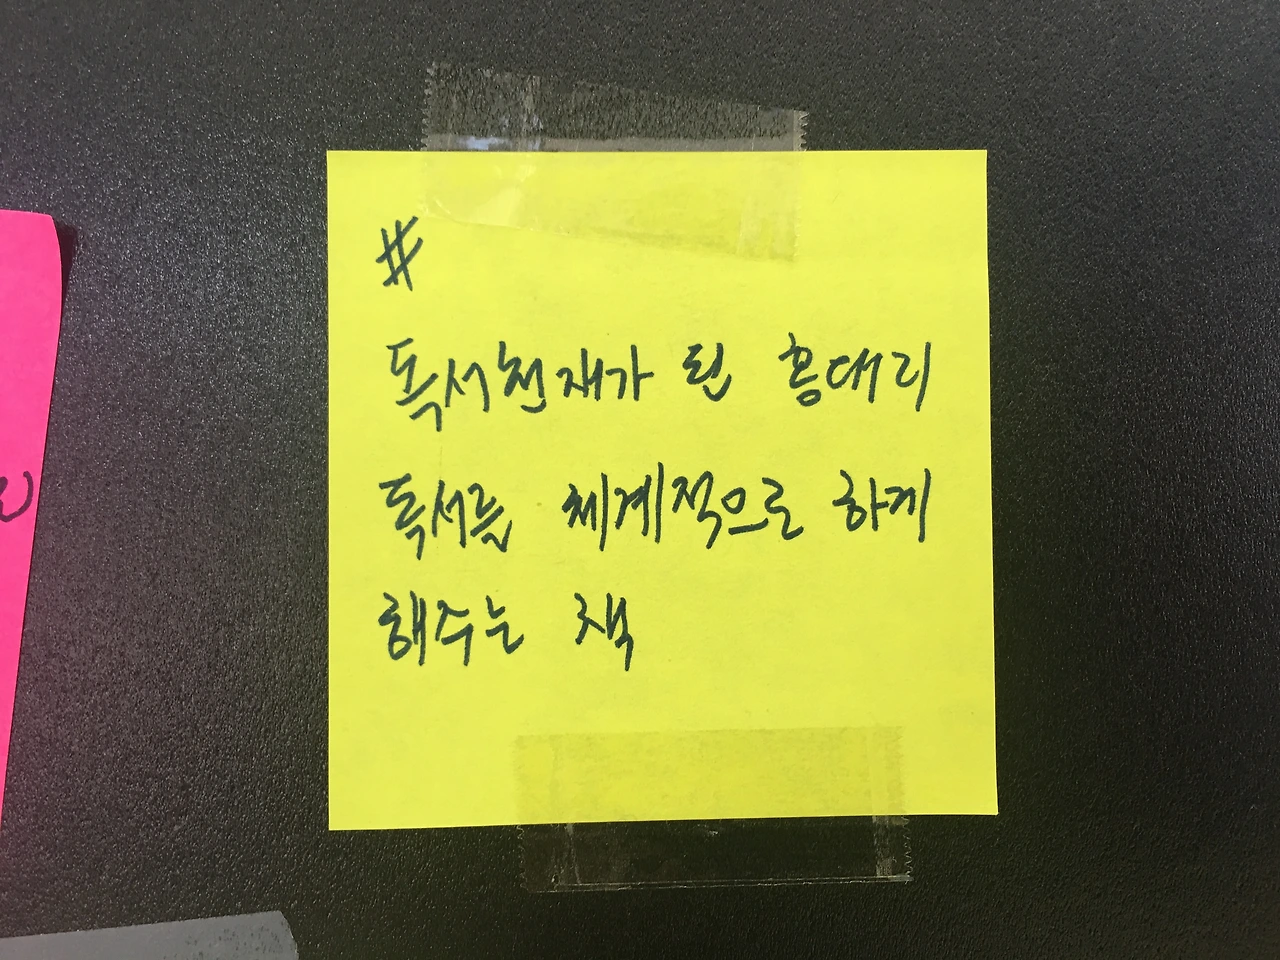 #
독서천재가 된 홍대리
독서를 체계적으로 하게
해주는 책